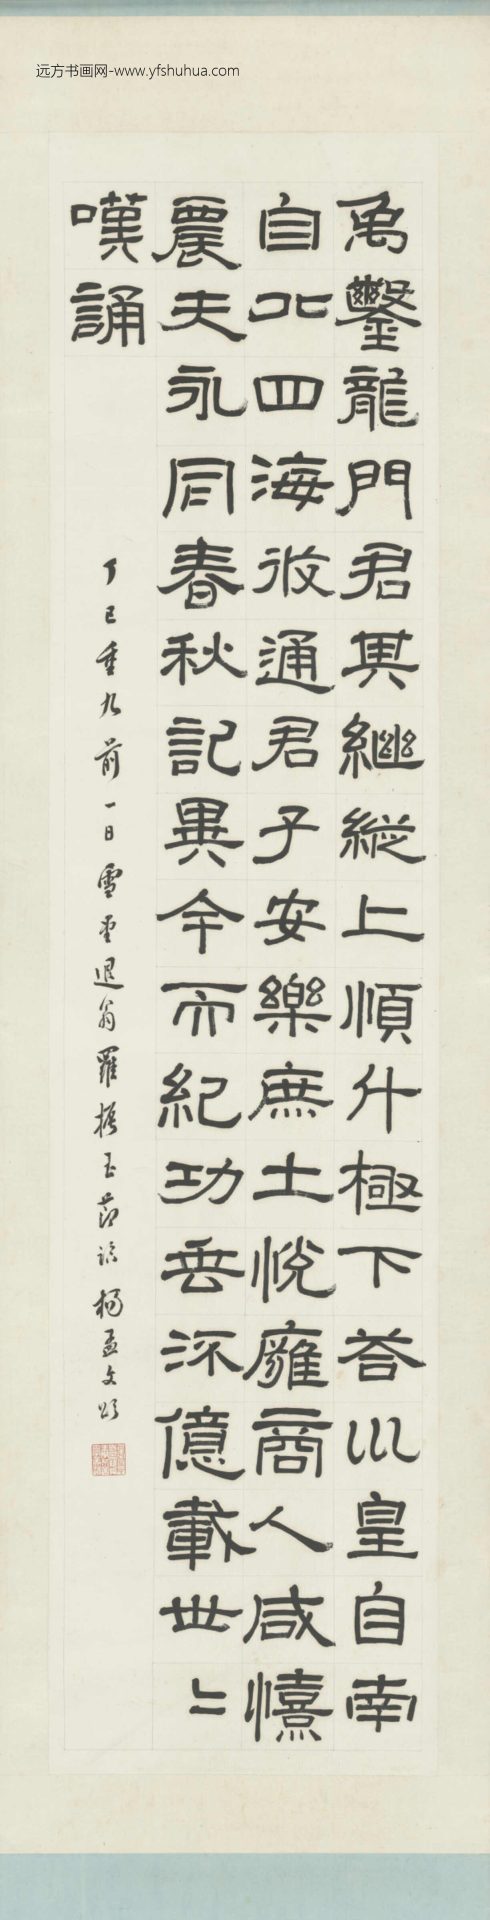 远方书画网-www.yfshuhua.com
禹鑿龍門君其繼縱上順斗極下答巛皇自南
自北四海攸通君子安樂庶士悅廱商人咸憘
農夫永同春秋記異今而紀功垂流億載世〻
嘆誦
丁巳重九前一日雪堂退翁羅振玉節臨楊孟文頌